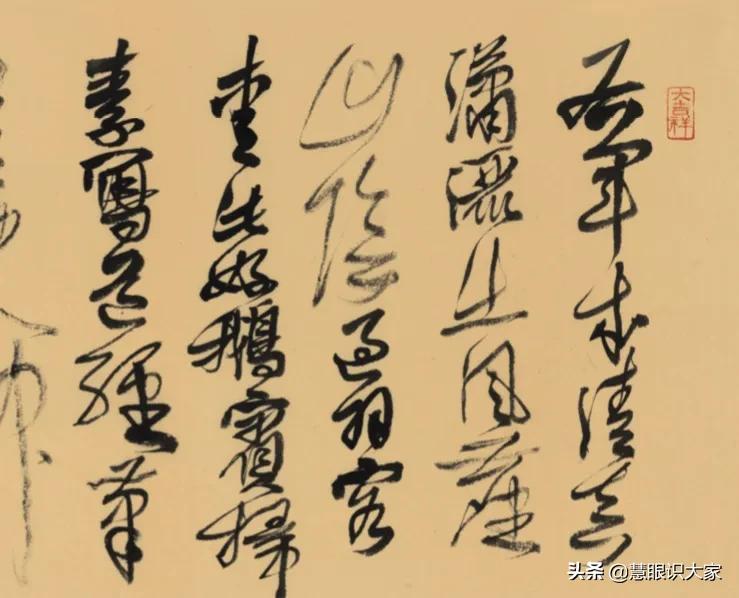 大吉祥
右軍本清真
瀟灑出風塵
山陰過羽客
愛此好鵝賓掃
素寫道經筆
头条 @慧眼识大家